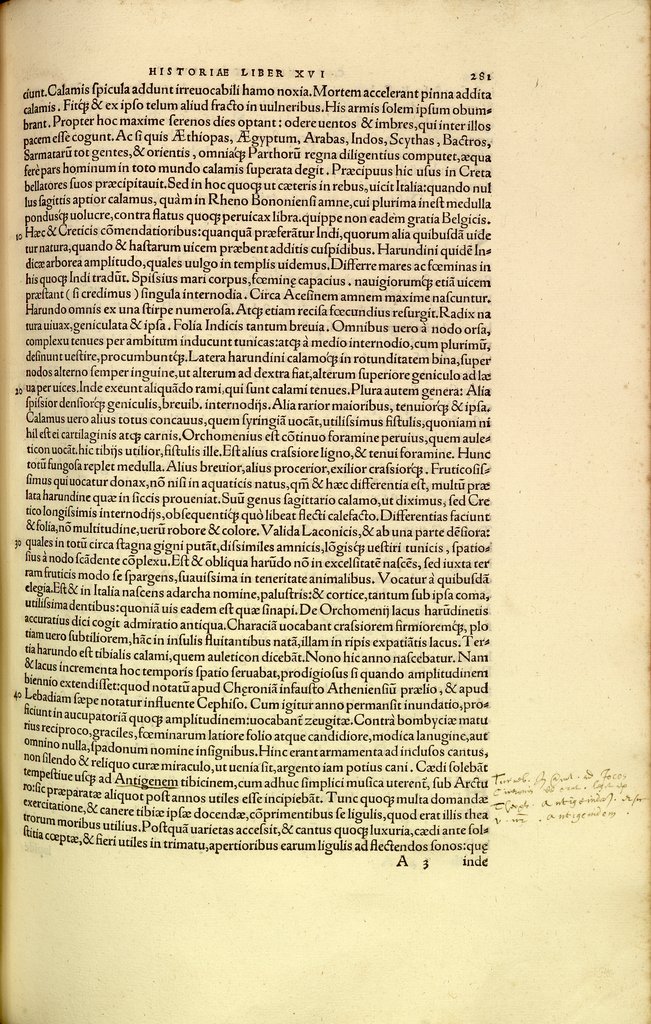 HISTORIAE LIBER XVI 281
ciunt. Calamis spicula addunt irreuocabili hamo noxia. Mortem accelerant pinna addita
calamis. Fitq́; & ex ipso telum aliud fracto in uulneribus. His armis solem ipsum obum-
brant. Propter hoc maxime serenos dies optant: odere uentos & imbres, qui inter illos
pacem esse cogunt. Ac si quis Æthiopas, Ægyptum, Arabas, Indos, Scythas, Bactros,
Sarmatarū tot gentes, & orientis, omniaq́; Parthorū regna diligentius computet, æqua
ferè pars hominum in toto mundo calamis superata degit. Præcipuus hic usus in Creta
bellatores suos præcipitauit. Sed in hoc quoq; ut cæteris in rebus, uicit Italia: quando nul
lus sagittis aptior calamus, quàm in Rheno Bononiensi amne, cui plurima inest medulla
pondusq́; uolucre, contra flatus quoq; peruicax libra. quippe non eadem gratia Belgicis.
10 Hæc & Creticis cōmendatioribus: quanquā præferātur Indi, quorum alia quibusdā uide
tur natura, quando & hastarum uicem præbent additis cuspidibus. Harundini quidē In-
dicæ arborea amplitudo, quales uulgo in templis uidemus. Differre mares ac fœminas in
his quoq; Indi tradūt. Spissius mari corpus, fœminę capacius. nauigiorumq́; etiā uicem
præstant (si credimus) singula internodia. Circa Acesinem amnem maxime nascuntur.
Harundo omnis ex una stirpe numerosa. Atq; etiam recisa fœcundius resurgit. Radix na
tura uiuax, geniculata & ipsa. Folia Indicis tantum breuia. Omnibus uero à nodo orsa,
complexu tenues per ambitum inducunt tunicas: atq; à medio internodio, cum plurimū,
desinunt uestire, procumbuntq́;. Latera harundini calamoq́; in rotunditatem bina, super
nodos alterno semper inguine, ut alterum ad dextra fiat, alterum superiore geniculo ad læ
20 ua per uices. Inde exeunt aliquādo rami, qui sunt calami tenues. Plura autem genera: Alia
spissior densiorq́; geniculis, breuib. internodijs. Alia rarior maioribus, tenuiorq́; & ipsa.
Calamus uero alius totus concauus, quem syringiā uocāt, utilissimus fistulis, quoniam ni
hil est ei cartilaginis atq; carnis. Orchomenius est cōtinuo foramine peruius, quem aule-
ticon uocāt. hic tibijs utilior, fistulis ille. Est alius crassiore ligno, & tenui foramine. Hunc
totū fungosa replet medulla. Alius breuior, alius procerior, exilior crassiorq́;. Fruticosis-
simus qui uocatur donax, nō nisi in aquaticis natus, qm̄ & hæc differentia est, multū præ
lata harundine quæ in siccis proueniat. Suū genus sagittario calamo, ut diximus, sed Cre
tico longissimis internodijs, obsequenticq́; quò libeat flecti calefacto. Differentias faciunt
& folia, nō multitudine, uerū robore & colore. Valida Laconicis, & ab una parte dēsiora:
30 quales in totū circa stagna gigni putāt, dissimiles amnicis, lōgisq́; uestiri tunicis, spatio-
sius à nodo scādente cōplexu. Est & obliqua harūdo nō in excelsitatē nascēs, sed iuxta ter
ram fruticis modo se spargens, suauissima in teneritate animalibus. Vocatur à quibusdā
elegia. Est & in Italia nascens adarcha nomine, palustris: & cortice, tantum sub ipsa coma,
utilissima dentibus: quoniā uis eadem est quæ sinapi. De Orchomenij lacus harūdinetis
accuratius dici cogit admiratio antiqua. Characiā uocabant crassiorem firmioremq́;, plo
tiam uero subtiliorem, hāc in insulis fluitantibus natā, illam in ripis expatiātis lacus. Ter-
tia harundo est tibialis calami, quem auleticon dicebāt. Nono hic anno nascebatur. Nam
& lacus incrementa hoc temporis spatio seruabat, prodigiosus si quando amplitudinem
biennio extendisset: quod notatū apud Cheroniā infausto Atheniensiū prælio, & apud
40 Lebadiam sæpe notatur influente Cephiso. Cum igitur anno permansit inundatio, pro-
ficiunt in aucupatoriā quoq; amplitudinem: uocabant̄ zeugitæ. Contrà bombyciæ matu
rius reciproco, graciles, fœminarum latiore folio atque candidiore, modica lanugine, aut
omnino nulla, spadonum nomine insignibus. Hinc erant armamenta ad inclusos cantus,
non silendo & reliquo curæ miraculo, ut uenia sit, argento iam potius cani. Cædi solebāt
tempestiue usq; ad Antigenem tibicinem, cum adhuc simplici musica uterent̄, sub Arctu
ro: sic præparatæ aliquot post annos utiles esse incipiebāt. Tunc quoq; multa domandæ
exercitatione, & canere tibiæ ipsæ docendæ, cōprimentibus se ligulis, quod erat illis thea
trorum moribus utilius. Postquā uarietas accessit, & cantus quoq; luxuria, cædi ante sol-
stitia cœptæ, & fieri utiles in trimatu, apertioribus earum ligulis ad flectendos sonos: quę
A 3 inde